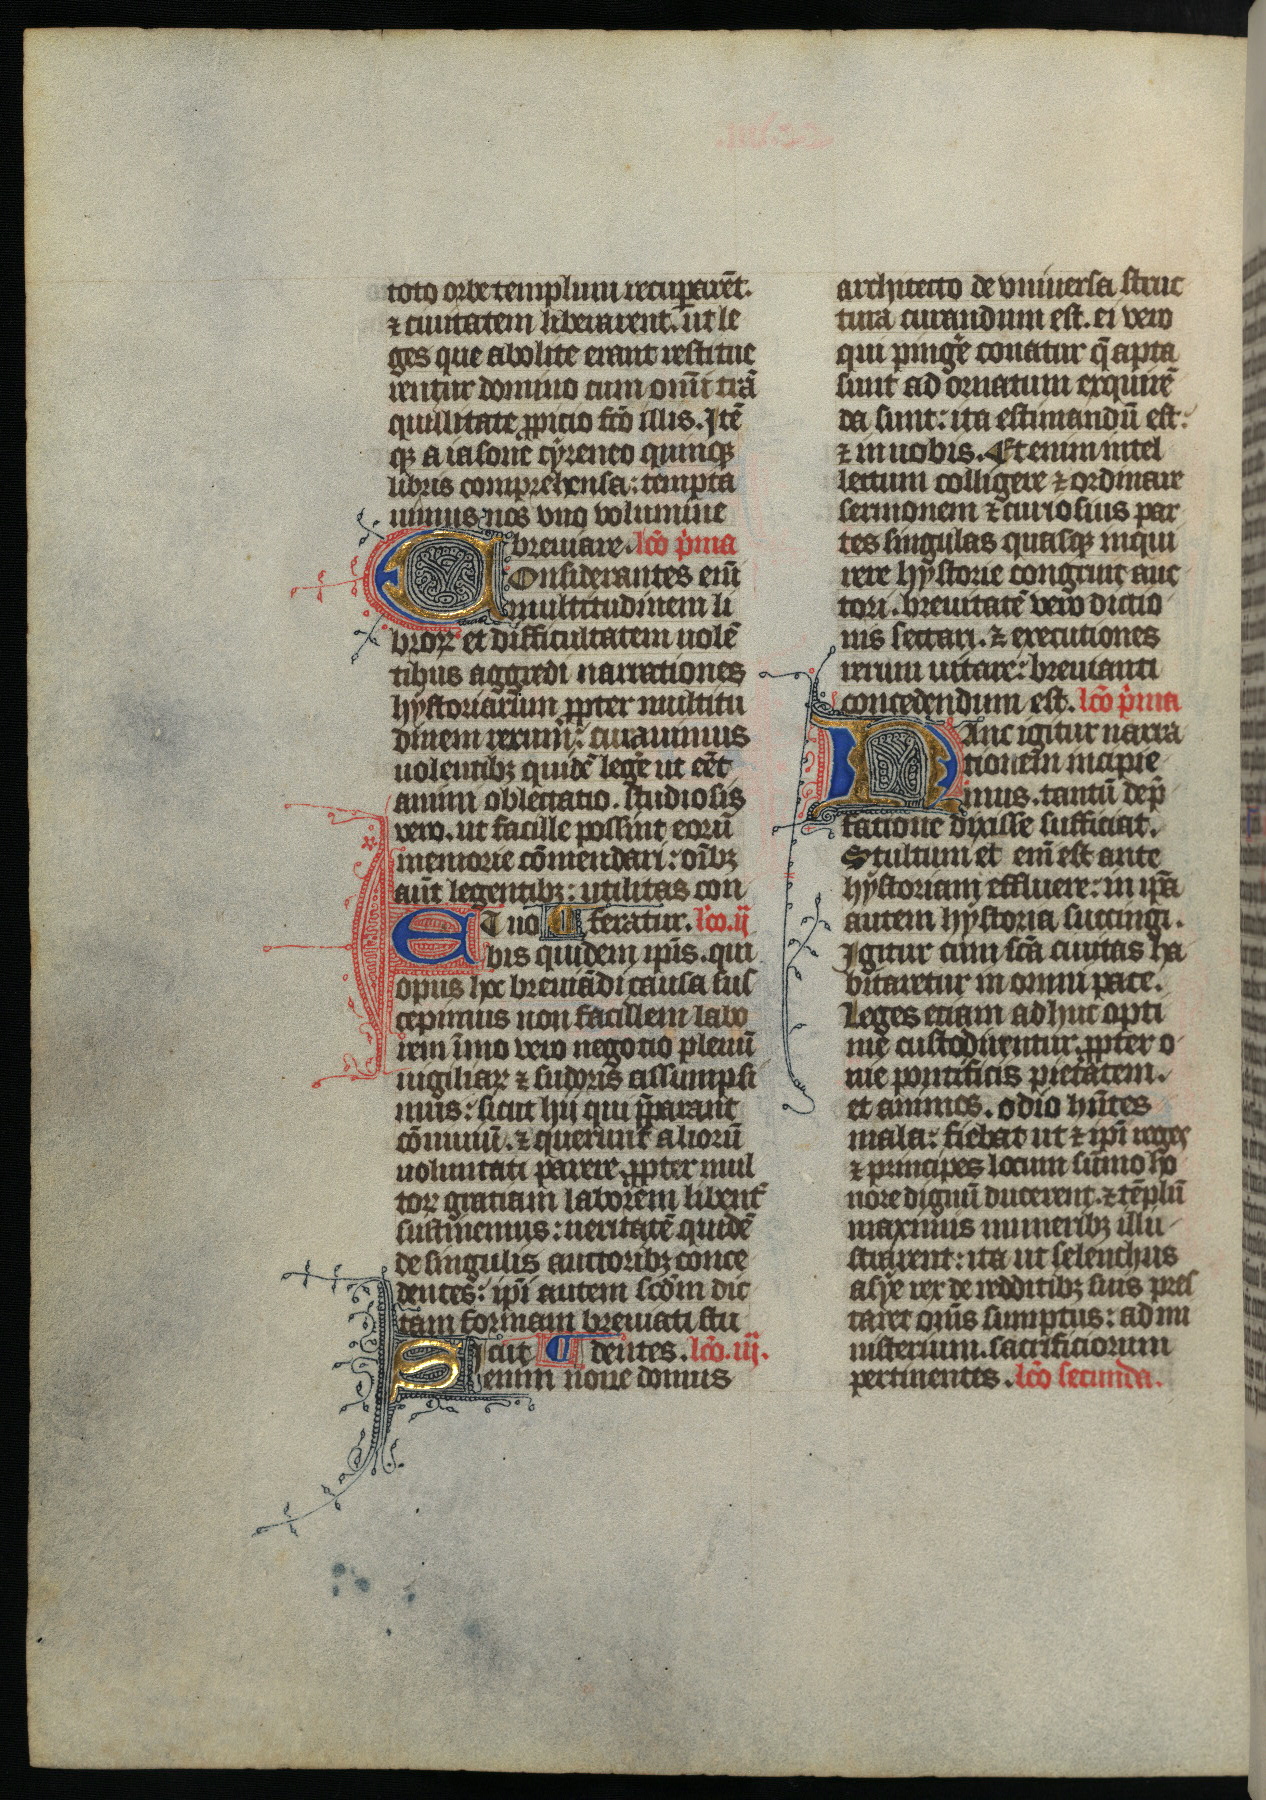 toto orbe templum recuparēt.
⁊ ciuitatem liberarent. ut le
ges que abolite erant restitue
rentur domino cum omīi trā
quillitate ꝓpicio fc̄o illis. Itē
qꝫ a iasone cyreneo quinqꝫ
libris comprehensa: tempta
uimus nos vno volumine
breuiare. lc̄o p̄ma
Onsiderantes eiū
multitudinem li
broꝝ et difficultatem uolē
tibus aggredi narrationes
hystoriarum ꝓpter multitu
dinem rerum: curauimus
uolentibꝫ quidē legē ut eēt
animi oblectatio. studiosis
vero. ut facille possint eorū
memorie cōmendari: oībꝫ
aūt legentibꝫ: utilitas con
ET no feratur. lc̄o. ij
bis quidem ip̄is. qui
opus hoc breuiādi causa sus
cepimus non facillem labo
rem īmo vero negotio plenū
uigiliaꝝ ⁊ sudoris assumpsi
mus: sicut hij qui p̄parant
cōuiuiū. ⁊ querunt alioru
uoluntati parere ꝓpter mul
toꝝ gratiam laborem libent̄
sustinemus: ueritatē quidē
de singulis auctoribꝫ conce
dentes: ip̄i autem sc̄dm dic
tam formam breuiati stu
SIcut dentes. lc̄o. iij.
enim noue domus
architecto de vniuersa struc
tura curandum est. ei vero
qui pingē conatur q̄ apta
sunt ad ornatum exquirē
da sunt: ita estimandū est
⁊ in uobis. Etenim intel
lectum colligere ⁊ ordinare
sermonem ⁊ curiosius par
tes singulas quasqꝫ inqui
rere hystorie congruit auc
tori. breuitatē vero dictio
nis sectari. ⁊ executiones
rerum uitare: breuianti
concedendum est. lc̄o p̄ma
HAnc igitur narra
tionem incipie
mus. tantū dep̄
fatione dixisse sufficiat.
Stultum et enī est ante
hystoriam effluere: in ip̄a
autem hystoria succingi.
Igitur cum sc̄a ciuitas ha
bitaretur in omni pace.
Leges etiam adhuc opti
me custodirentur. ꝓpter o
nie pontificis pietatem.
et animos. odio hn̄tes
mala: fiebat ut ⁊ ip̄i reges
⁊ principes locum sūmo ho
nore dignū ducerent. ⁊ tēplū
maximis muneribꝫ illu
strarent: ita ut selenchus
asye rex de redditibꝫ suis pres
taret om̄s sumptus: ad mi
nisterium. sacrificiorum
pertinentes. lc̄o secunda.